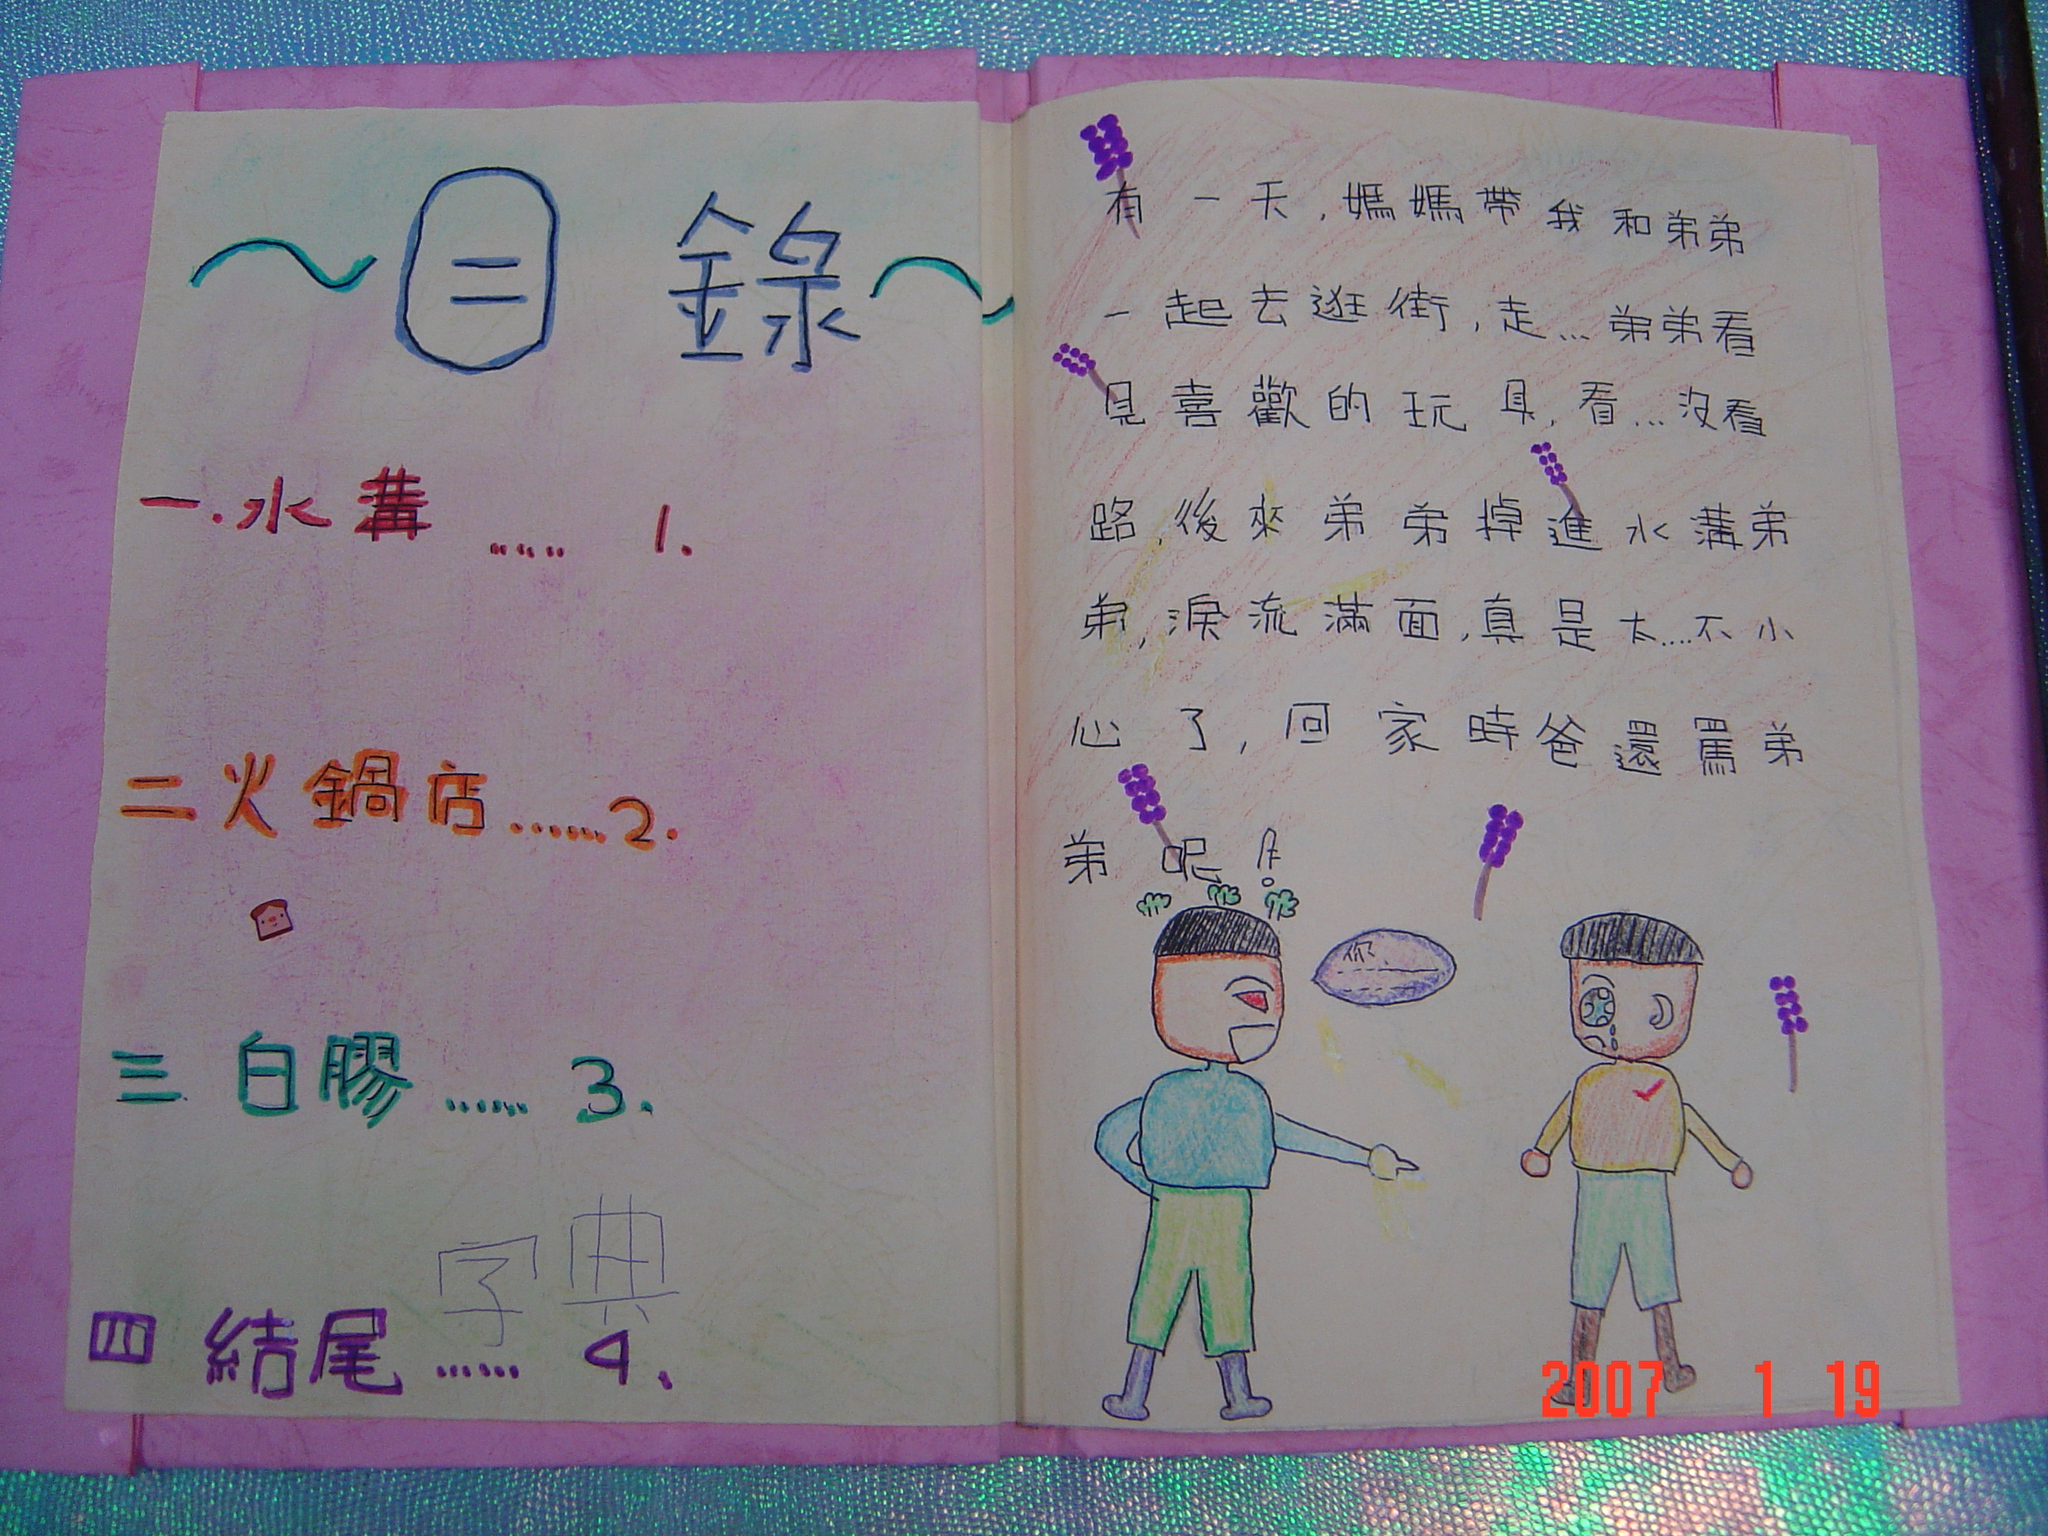 ~目錄~
一.水溝……1.
二火鍋店……2.
三白膠……3.
字典
四結尾……4.
有一天,媽媽帶我和弟弟
一起去逛街,走…弟弟看
見喜歡的玩具,看…沒看
路,後來弟弟掉進水溝弟
弟,淚流滿面,真是太…不小
心了,回家時爸還罵弟
弟呢!
你
2007 1 19